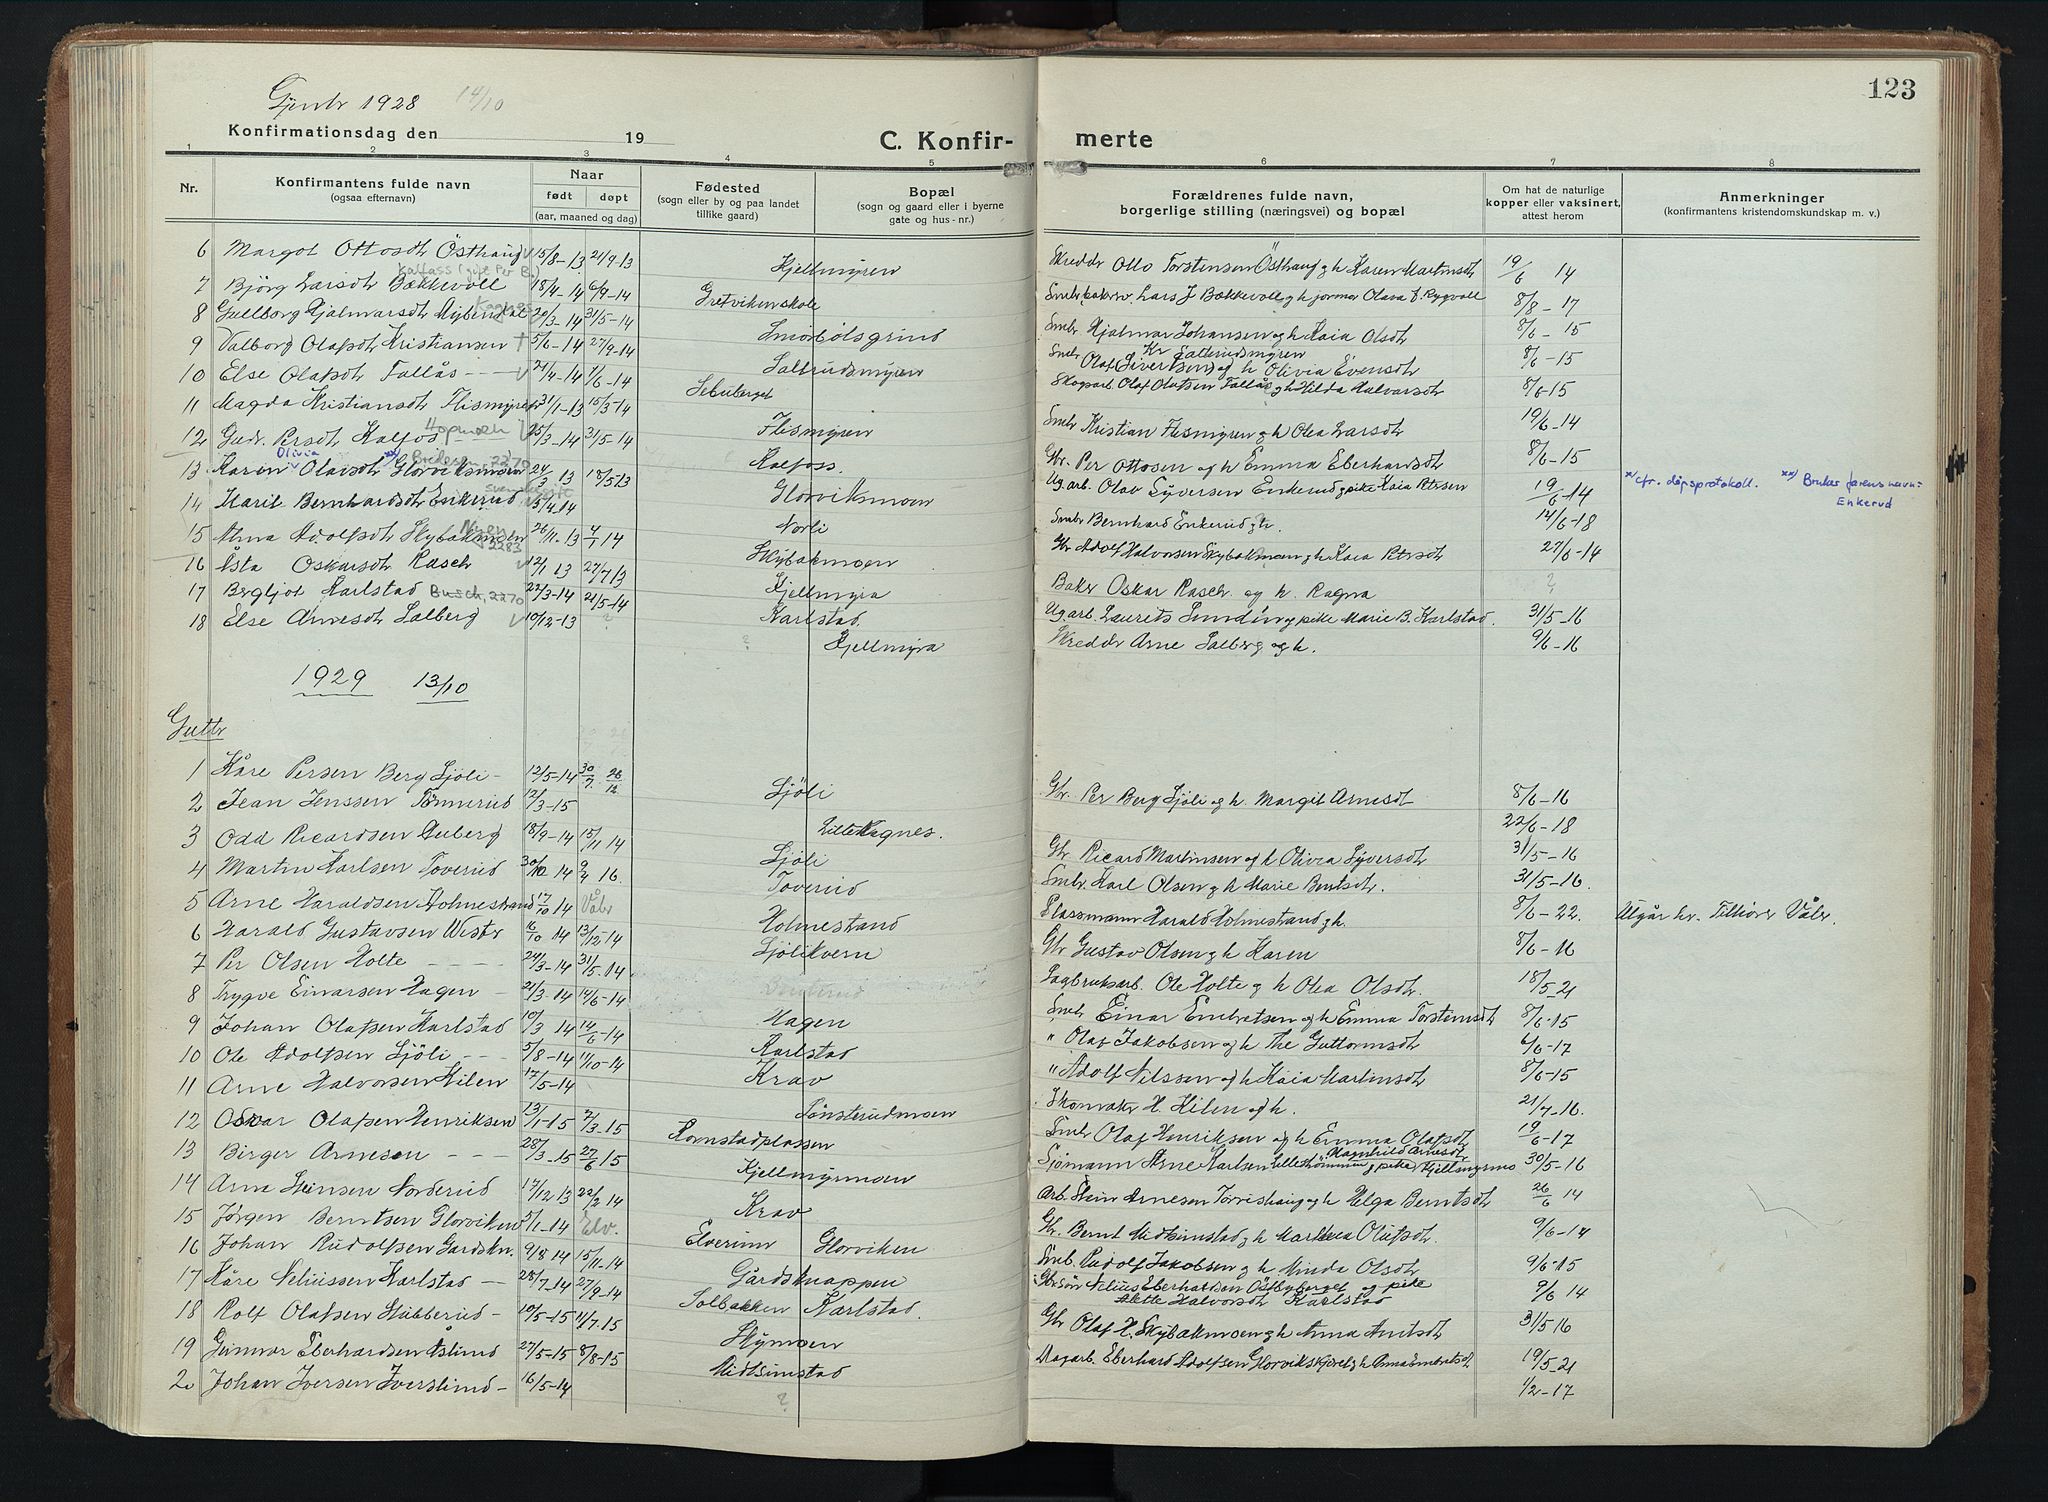 123
Gjenter 1928 14/10
Konfirmationsdag den 19
C. Konfir- merte
1 2 3 4 5 6 7 8
Nr. Konfirmantens fulde navn (ogsaa efternavn) Naar født døpt (aar, maaned og dag) Fødested (sogn eller by og paa landet tillike gaard) Bopæl (sogn og gaard eller i byerne gate og hus-nr.) Forældrenes fulde navn, borgerlige stilling (næringsvei) og bopæl Om hat de naturlige kopper eller vaksinert, attest herom Anmerkninger (konfirmantens kristendomskundskap m. v.)
6 Margot Ottosdtr Østhaug 15/8-13 21/9-13 Kjellmyren Skredder Otto Torstensen Østhaug og h Karen Martinsdt 19/6 14
7 Bjørg Larsdtr Bækkevoll 18/4-14 6/9-14 Gretvikenskole Lars J Bækkevoll og h Olava 8/8-17
8 Gullborg Hjalmarsdtr 20/3-14 31/5-14 Smørbølsgrind Smbr Hjalmar Johansen og h Kaia Olsdt 8/6-15
9 Valborg Olafsdtr Kristiansen 5/6-14 27/9-14 Salterudsmyren Smbr Olaf Sivertsen og h Olivia Evensdtr 8/6-15
10 Else Olafsdtr Fallås 21/4-14 1/6-14 Sebuberget Skogarb Olaf Olafsen Fallås og h Hilda Halvorsdtr 8/6-15
11 Magda Kristiansdtr Flismyren 31/1-13 15/3-14 Flismyren Smbr Kristian Flismyren og h Olea Larsdtr 19/6-14
12 Gudr. Persdtr Kalfos 25/3-14 31/5-14 Kalfoss. Gbr. Per Ottosen og h Emma Eberhardsdt 8/6-15
13 Karen Olivia Olavsdtr Glorviksmoen 24/3 13 18/5 13 Glorviksmoen Ug. arb. Olav Syversen Enkerud og pike Kaia Petersen 19/6-14 x) cfr. dåpsprotokoll. xx) Bruker farens navn = Enkerud
14 Marit Bernhardsdtr Enkerud 15/4 14 Norli Smbr Bernhard Enkerud og h. 14/6-18
15 Alma Adolfsdtr Skybakmoen 26/11-13 4/1 14 Skybakmoen Gbr Adolf Halvorsen Skybakmoen og h Kaia Petersdtr 27/6-14
16 Åsta Oskarsdtr Rasch 12/1 13 27/7 13 Kjellmyra Baker Oskar Rasch. og h. Ragna ?
17 Bergljot Karlstad Busch, 2270 22/3-14 21/5-14 Karlstad. Ug. arb. Laurits Lundin og pike Marie B. Karlstad. 31/5-16
18 Else Arnesdtr Salberg 10/12-13 ? ? Kjellmyra Skredder Arne Salberg og h. 9/6-16
1929 13/10
Gutter
1 Kåre Persen Berg Sjøli 12/5-14 30/7. 26/12 Sjøli Gbr. Per Berg Sjøli og h. Margit Arnesdt 8/6-16
2 Jean Jenssen Tønnerud 12/3-15 Lille Kagnes. 22/6-18
3 Odd Ricardsen Auberg 18/9-14 15/11 14 Sjøli Gbr Ricard Martinsen og h Olivia Syversdtr 31/5-16
4 Martin Karlsen Toverud 30/10 14 9/4 16. Toverud Smbr. Karl Olsen og h Marie Berntsdtr. 31/5-16.
5 Arne Haraldsen Holmestrand 17/10 14 Våler Holmestrand Plassmann Harald Holmestrand og h. 8/6-22. Utgår hr. Tilhører Våler.
6 Harald Gustavsen Wester 16/10 14 13/12 14 Sjølikvern Gbr Gustav Olsen og h Karen 8/6-16
7 Per Olsen Holte 24/3-14 31/5-14 Sagbruksarb. Ole Holte og h Olea Olsdtr. 18/5-21
8 Trygve Einarsen Hagen 21/3-14 14/6-14 Hagen Smbr Einar Embretsen og h Emma Torstensdtr 8/6-15
9 Johan Olafsen Karlstad 10/3 14 14/6-14 Karlstad " Olaf Jakobsen og h Thea Guttormsdtr 6/6-17
10 Ole Adolfsen Sjøli 5/8-14 11/10-14 Krav " Adolf Nilssen og h Kaia Martinsdtr 8/6-15
11 Arne Halvorsen Kilen 17/5-14 Sønsterudmoen Skomaker H. Kilen og h. 21/7-16.
12 Oskar Olafsen Henriksen 13/1-15 7/3-15 Kornstadplassen Smbr Olaf Henriksen og h Emma Olafsdtr 19/6-17
13 Birger Arnesen 28/3-15 27/6 15 Kjellmyrmoen Sjømann Arne Karlsen og pike Magnhild Arnesdtr Kjellmyrmo 30/5-16
14 Arne Steinsen Norderud 17/12 13 22/2 14 Krav Arb. Stein Arnesen Torrishaug og h Helga Berntsdtr 26/6 14
15 Jørgen Berntsen Glorviken 5/1-14 Elv. Elverum Glorviken Gbr. Bernt Midtsimstad og h Marthea Olufsdtr. 9/6-14
16 Johan Rudolfsen Gårdskn. 9/8 14 15/11-14 Gårdsknappen Smb. Rudolf Jakobsen og h Minda Olsdtr 9/6-15
17 Kåre Neliussen Karlstad 28/7-14 27/9-14 Solbakken Karlstad. Gbr søn Nelius Eberhardsen Østbyberget og pike Halvorsdtr Karlstad 9/6 14
18 Rolf Olafsen Stubberud 10/5-15 11/7-15 Skymoen Gbr Olaf H. Skybakmoen og h Anna Antsdtr 31/5 16
19 Gunnar Eberhardsen Åslund 27/5-15 8/8-15 Midtsimstad Eberhard Adolfsen 19/5-21
20 Johan Iversen Iverslund 16/5-14 ? 1/2-17